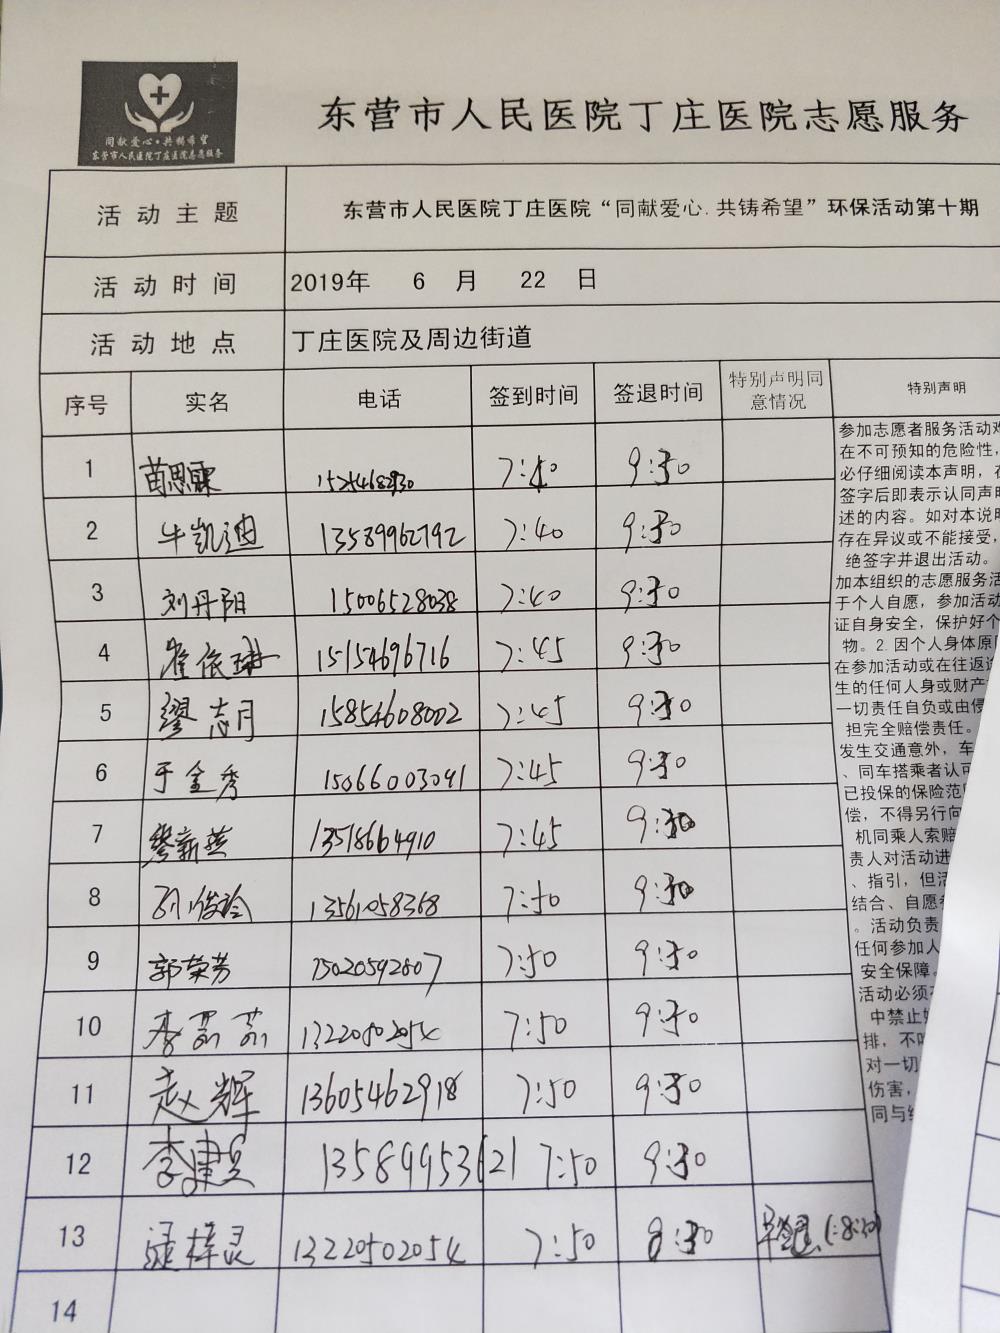 同献爱心·共铸希望
东营市人民医院丁庄医院志愿服务
东营市人民医院丁庄医院志愿服务
活动主题 东营市人民医院丁庄医院“同献爱心.共铸希望”环保活动第十期
活动时间 2019年 6 月 22 日
活动地点 丁庄医院及周边街道
序号 实名 电话 签到时间 签退时间 特别声明同意情况 特别声明
1 苗思霖 15254682930 7:40 9:30
2 牛凯迪 13589962792 7:40 9:30
3 刘丹阳 15006528038 7:40 9:30
4 崔依琳 15154696716 7:45 9:30
5 缪志月 15854608002 7:45 9:30
6 于金秀 15066003091 7:45 9:30
7 新燕 13518664910 7:45 9:30
8 孙俊玲 13561058368 7:50 9:30
9 郭荣芳 15020592807 7:50 9:30
10 李荔荔 13220502054 7:50 9:30
11 赵辉 13605462918 7:50 9:30
12 李建 13589953621 7:50 9:30
13 梓灵 13220502054 7:50 8:30 早 (:8:30)
14
参加志愿者服务活动难
在不可预知的危险性，
必仔细阅读本声明，在
签字后即表示认同声明
述的内容。如对本说明
存在异议或不能接受，
绝签字并退出活动。
加本组织的志愿服务活
于个人自愿，参加活动
证自身安全，保护好个
物。2.因个人身体原因
在参加活动或在往返途
生的任何人身或财产
一切责任自负或由侵
担完全赔偿责任。
发生交通意外，车
、同车搭乘者认可
已投保的保险范围
偿，不得另行向
机同乘人索赔
责人对活动进
、指引，但活
结合、自愿参
。活动负责
任何参加人
安全保障。
活动必须
中禁止
排，不
对一切
伤害，
同与组